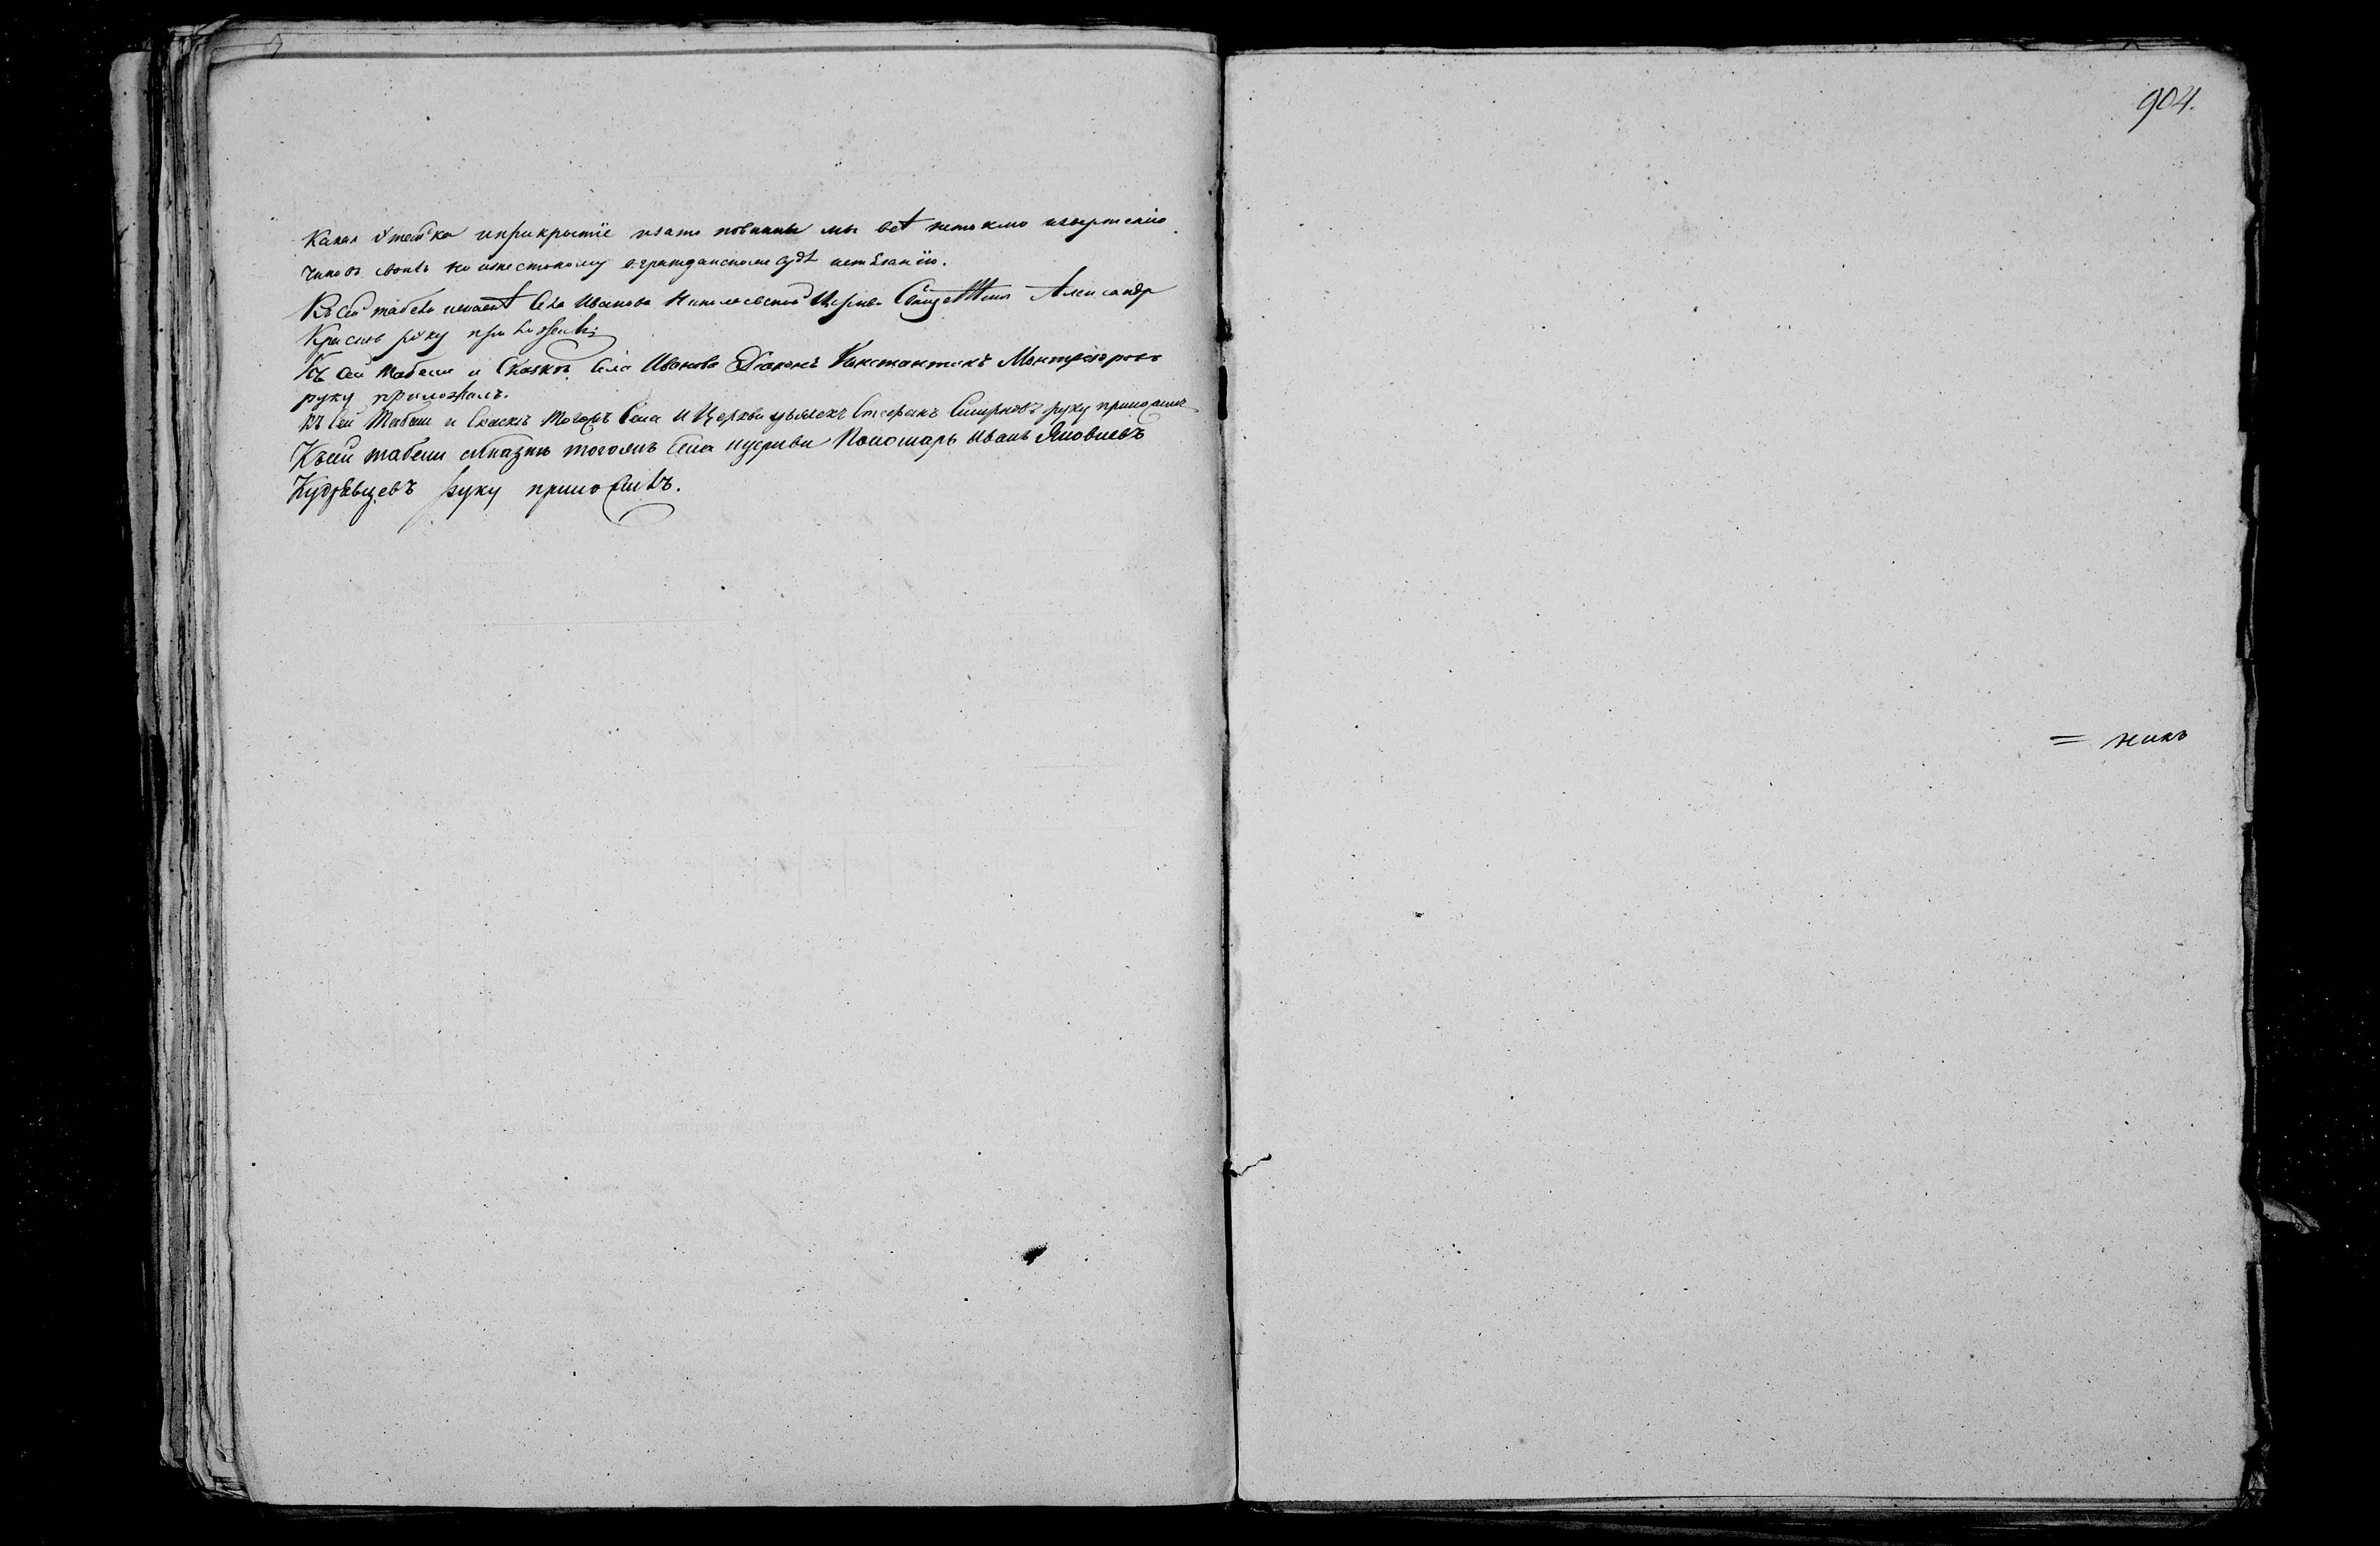 Какая утайка и прикрытiе и за то повинны мы всѣ нетокмо извержению
чиновъ своихъ но и жестокому в гражданскомъ судѣ истязанiю.
Къ сей табели Села Иванова Николаевской Церкви Священникъ Александр
руку приложилъ
Къ сей табели и Сказкѣ Села Иванова Дiаконъ Константинъ
руку приложилъ.
къ сей Табели и Сказкѣ тогожъ Села и Церкви дьячекъ Стефанъ Смирновъ руку приложилъ
Къ сей табели и сказкѣ тогожъ Села и церкви Пономарь Иванъ Яковлевъ
Кудрявцевъ руку приложилъ.
904.
= никъ